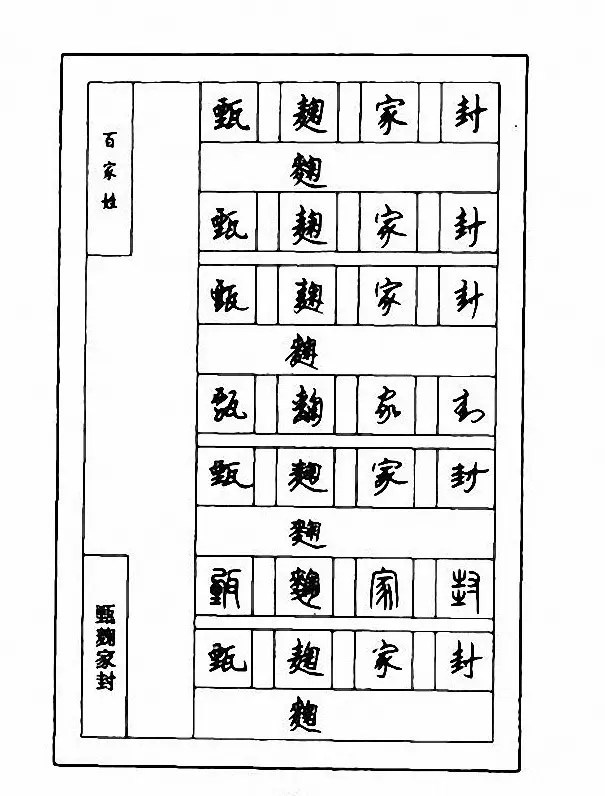 百家姓
甄 麴 家 封
麴
甄 麴 家 封
甄 麴 家 封
麴
甄 麴 家 封
甄 麴 家 封
麴
甄 麴 家 封
甄 麴 家 封
麴
甄麴家封